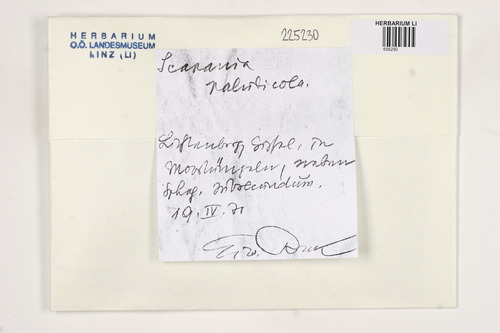 HERBARIUM
O.Ö. LANDESMUSEUM
LINZ (LI)
225230
HERBARIUM LI
Scapania
paludicola.
Lichtenberg, Gipfel, in
Moortümpeln, neben
Sphag. subsecundum.
19. IV. 71